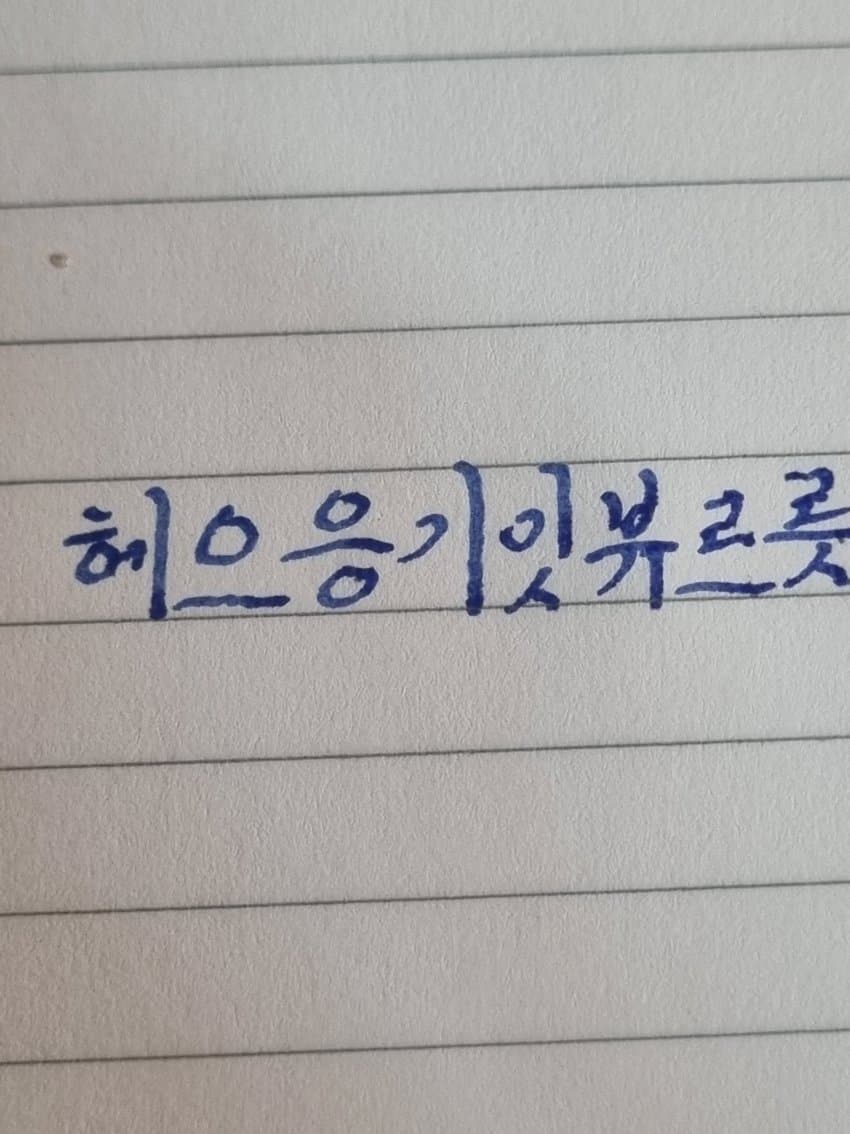 허으응기잇뷰르릇